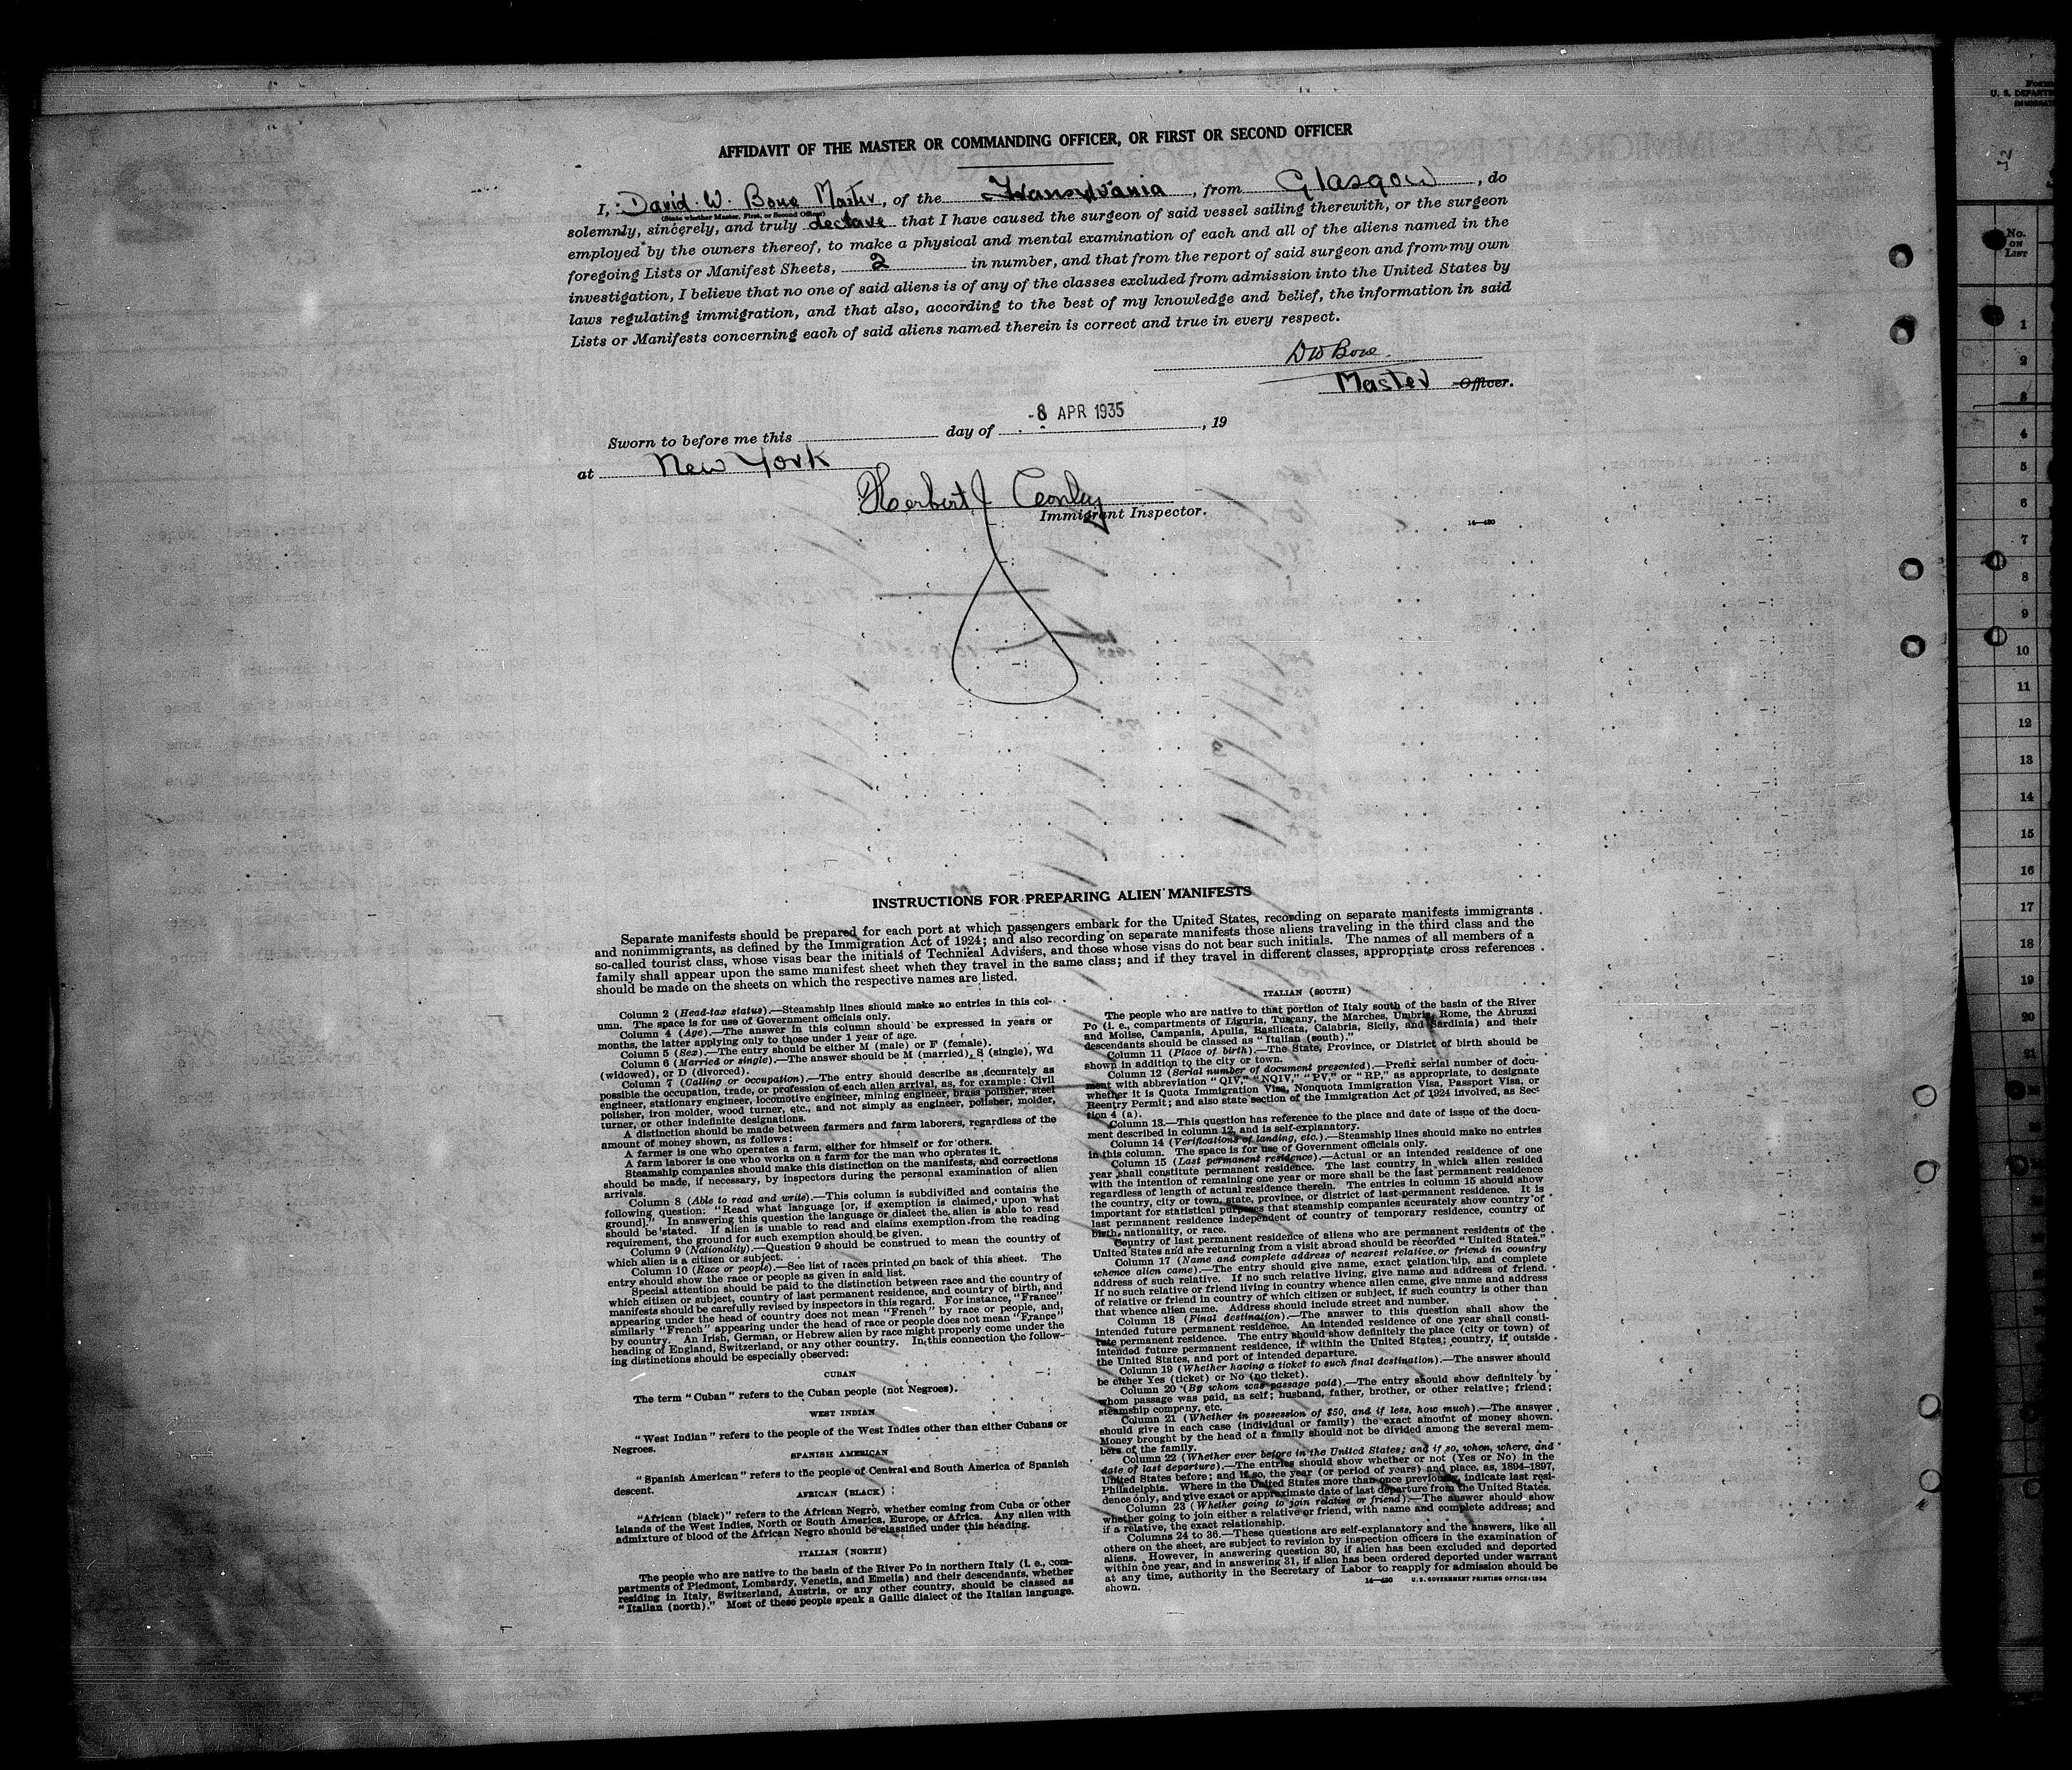 AFFIDAVIT OF THE MASTER OR COMMANDING OFFICER, OR FIRST OR SECOND OFFICER
I, David. W. Bone Master, of the Transylvania, from Glasgow, do
(State whether Master, First, or Second Officer)
solemnly, sincerely, and truly declare that I have caused the surgeon of said vessel sailing therewith, or the surgeon
employed by the owners thereof, to make a physical and mental examination of each and all of the aliens named in the
foregoing Lists or Manifest Sheets, 2 in number, and that from the report of said surgeon and from my own
investigation, I believe that no one of said aliens is of any of the classes excluded from admission into the United States by
laws regulating immigration, and that also, according to the best of my knowledge and belief, the information in said
Lists or Manifests concerning each of said aliens named therein is correct and true in every respect.
DW Bone
Master Officer.
-8 APR 1935
Sworn to before me this day of , 19
at New York
Herbert J
Immigrant Inspector.
14—430
INSTRUCTIONS FOR PREPARING ALIEN MANIFESTS
Separate manifests should be prepared for each port at which passengers embark for the United States, recording on separate manifests immigrants
and nonimmigrants, as defined by the Immigration Act of 1924; and also recording on separate manifests those aliens traveling in the third class and the
so-called tourist class, whose visas bear the initials of Technical Advisers, and those whose visas do not bear such initials. The names of all members of a
family shall appear upon the same manifest sheet when they travel in the same class; and if they travel in different classes, appropriate cross references
should be made on the sheets on which the respective names are listed.
Column 2 (Head-tax status).—Steamship lines should make no entries in this col-
umn. The space is for use of Government officials only.
Column 4 (Age).—The answer in this column should be expressed in years or
months, the latter applying only to those under 1 year of age.
Column 5 (Sex).—The entry should be either M (male) or F (female).
Column 6 (Married or single).—The answer should be M (married), S (single), Wd
(widowed), or D (divorced).
Column 7 (Calling or occupation).—The entry should describe as accurately as
possible the occupation, trade, or profession of each alien arrival, as, for example: Civil
engineer, stationary engineer, locomotive engineer, mining engineer, brass polisher, steel
polisher, iron molder, wood turner, etc., and not simply as engineer, polisher, molder,
turner, or other indefinite designations.
A distinction should be made between farmers and farm laborers, regardless of the
amount of money shown, as follows:
A farmer is one who operates a farm, either for himself or for others.
A farm laborer is one who works on a farm for the man who operates it.
Steamship companies should make this distinction on the manifests, and corrections
should be made, if necessary, by inspectors during the personal examination of alien
arrivals.
Column 8 (Able to read and write).—This column is subdivided and contains the
following question: "Read what language [or, if exemption is claimed, upon what
ground]." In answering this question the language or dialect the alien is able to read
should be stated. If alien is unable to read and claims exemption from the reading
requirement, the ground for such exemption should be given.
Column 9 (Nationality).—Question 9 should be construed to mean the country of
which alien is a citizen or subject.
Column 10 (Race or people).—See list of races printed on back of this sheet. The
entry should show the race or people as given in said list.
Special attention should be paid to the distinction between race and the country of
which citizen or subject, country of last permanent residence, and country of birth, and
manifests should be carefully revised by inspectors in this regard. For instance, "France"
appearing under the head of country does not mean "French" by race or people, and,
similarly "French" appearing under the head of race or people does not mean "France"
by country. An Irish, German, or Hebrew alien by race might properly come under the
heading of England, Switzerland, or any other country. In this connection the follow-
ing distinctions should be especially observed:
CUBAN
The term "Cuban" refers to the Cuban people (not Negroes).
WEST INDIAN
"West Indian" refers to the people of the West Indies other than either Cubans or
Negroes.
SPANISH AMERICAN
"Spanish American" refers to the people of Central and South America of Spanish
descent.
AFRICAN (BLACK)
"African (black)" refers to the African Negro, whether coming from Cuba or other
islands of the West Indies, North or South America, Europe, or Africa. Any alien with
admixture of blood of the African Negro should be classified under this heading.
ITALIAN (NORTH)
The people who are native to the basin of the River Po in northern Italy (i. e., com-
partments of Piedmont, Lombardy, Venetia, and Emelia) and their descendants, whether
residing in Italy, Switzerland, Austria, or any other country, should be classed as
"Italian (north)." Most of these people speak a Gallic dialect of the Italian language.
ITALIAN (SOUTH)
The people who are native to that portion of Italy south of the basin of the River
Po (i. e., compartments of Liguria, Tuscany, the Marches, Umbria, Rome, the Abruzzi
and Molise, Campania, Apulia, Basilicata, Calabria, Sicily, and Sardinia) and their
descendants should be classed as "Italian (south)."
Column 11 (Place of birth).—The State, Province, or District of birth should be
shown in addition to the city or town.
Column 12 (Serial number of document presented).—Prefix serial number of docu-
ment with abbreviation "QIV," "NQIV," "PV," or "RP," as appropriate, to designate
whether it is Quota Immigration Visa, Nonquota Immigration Visa, Passport Visa, or
Reentry Permit; and also state section of the Immigration Act of 1924 involved, as Sec-
tion 4 (a).
Column 13.—This question has reference to the place and date of issue of the docu-
ment described in column 12, and is self-explanatory.
Column 14 (Verifications of landing, etc.).—Steamship lines should make no entries
in this column. The space is for use of Government officials only.
Column 15 (Last permanent residence).—Actual or an intended residence of one
year shall constitute permanent residence. The last country in which alien resided
with the intention of remaining one year or more shall be the last permanent residence
regardless of length of actual residence therein. The entries in column 15 should show
the country, city or town, state, province, or district of last permanent residence. It is
important for statistical purposes that steamship companies accurately show country of
last permanent residence independent of country of temporary residence, country of
birth, nationality, or race.
Country of last permanent residence of aliens who are permanent residents of the
United States and are returning from a visit abroad should be recorded "United States."
Column 17 (Name and complete address of nearest relative or friend in country
whence alien came).—The entry should give name, exact relationship, and complete
address of such relative. If no such relative living, give name and address of friend.
If no such relative or friend living in country whence alien came, give name and address
of relative or friend in country of which citizen or subject, if such country is other than
that whence alien came. Address should include street and number.
Column 18 (Final destination).—The answer to this question shall show the
intended future permanent residence. An intended residence of one year shall consti-
tute permanent residence. The entry should show definitely the place (city or town) of
intended future permanent residence, if within the United States; country, if outside
the United States, and port of intended departure.
Column 19 (Whether having a ticket to such final destination).—The answer should
be either Yes (ticket) or No (no ticket).
Column 20 (By whom was passage paid).—The entry should show definitely by
whom passage was paid, as self; husband, father, brother, or other relative; friend;
steamship company, etc.
Column 21 (Whether in possession of $50, and if less, how much).—The answer
should give in each case (individual or family) the exact amount of money shown.
Money brought by the head of a family should not be divided among the several mem-
bers of the family.
Column 22 (Whether ever before in the United States; and if so, when, where, and
date of last departure).—The entries should show whether or not (Yes or No) in the
United States before; and if so, the year (or period of years) and place, as, 1894-1897,
Philadelphia. Where in the United States more than once previously, indicate last resi-
dence only, and give exact or approximate date of last departure from the United States.
Column 23 (Whether going to join relative or friend).—The answer should show
whether going to join either a relative or friend, with name and complete address; and
if a relative, the exact relationship.
Columns 24 to 36.—These questions are self-explanatory and the answers, like all
others on the sheet, are subject to revision by inspection officers in the examination of
aliens. However, in answering question 30, if alien has been excluded and deported
within one year, and in answering 31, if alien has been ordered deported under warrant
at any time, authority in the Secretary of Labor to reapply for admission should be
shown.
14—430 U. S. GOVERNMENT PRINTING OFFICE: 1934
No.
ON
LIST
1
2
3
4
5
6
7
8
9
10
11
12
13
14
15
16
17
18
19
20
21